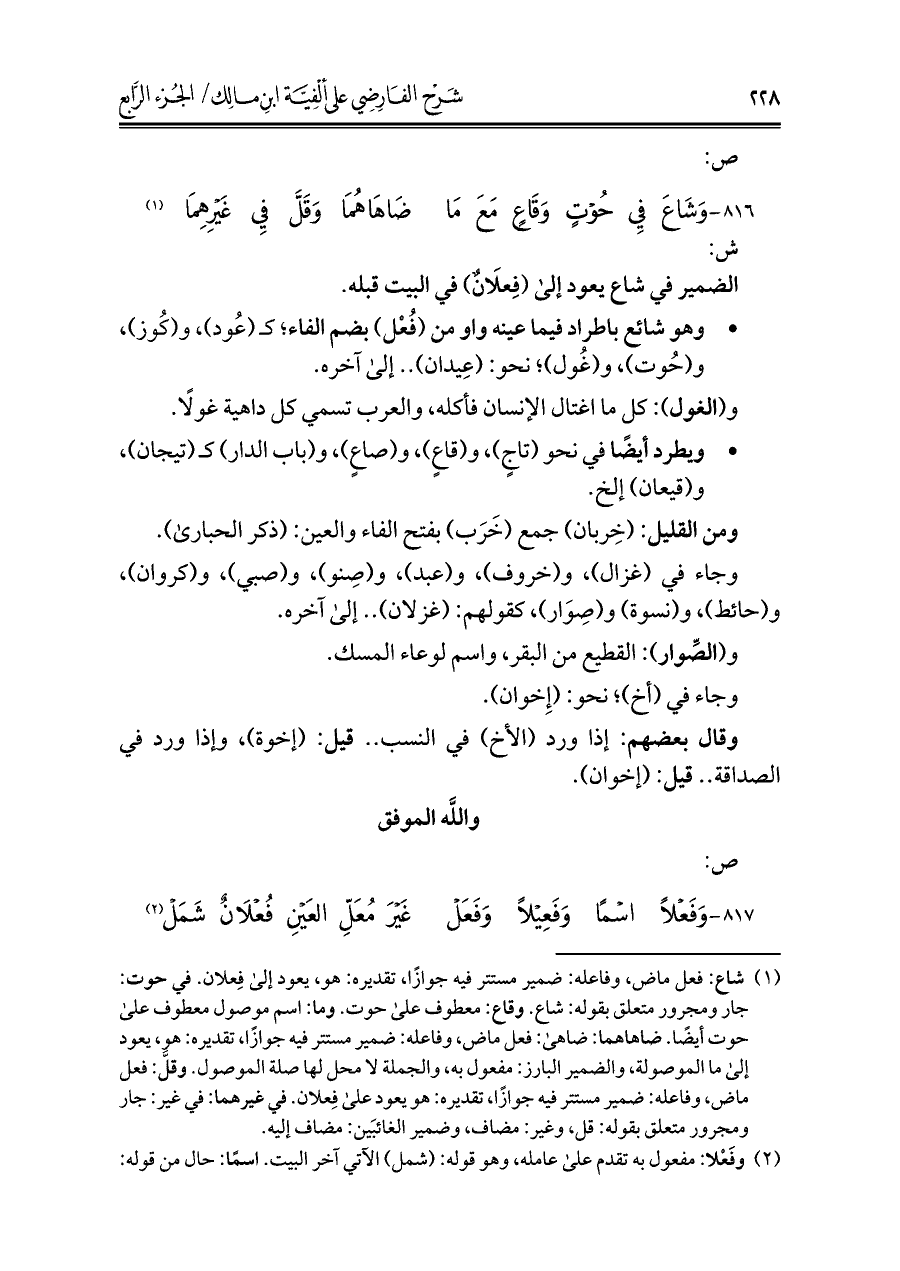 ٢٢٨ شَرْح الفَارِضِي على ألْفِيَّة ابنِ مالِك/ الجُزء الرَّابع
ص:
٨١٦-وَشَاعَ فِي حُوْتٍ وَقَاعٍ مَعَ مَا ضَاهَاهُمَا وَقَلَّ فِي غَيْرِهِمَا (١)
ش:
الضمير في شاع يعود إلىٰ (فِعلَانٌ) في البيت قبله.
• وهو شائع باطراد فيما عينه واو من (فُعْل) بضم الفاء؛ كـ (عُود)، و(كُوز)،
و(حُوت)، و(غُول)؛ نحو: (عِيدان).. إلىٰ آخره.
و(الغول): كل ما اغتال الإنسان فأكله، والعرب تسمي كل داهية غولًا.
• ويطرد أيضًا في نحو (تاجٍ)، و(قاعٍ)، و(صاعٍ)، و(باب الدار) كـ (تيجان)،
و(قيعان) إلخ.
ومن القليل: (خِربان) جمع (خَرَب) بفتح الفاء والعين: (ذكر الحبارىٰ).
وجاء في (غزال)، و(خروف)، و(عبد)، و(صِنو)، و(صبي)، و(كروان)،
و(حائط)، و(نسوة) و(صِوَار)، كقولهم: (غزلان).. إلىٰ آخره.
و(الصِّوار): القطيع من البقر، واسم لوعاء المسك.
وجاء في (أخ)؛ نحو: (إِخوان).
وقال بعضهم: إذا ورد (الأخ) في النسب.. قيل: (إخوة)، وإذا ورد في
الصداقة.. قيل: (إخوان).
واللَّه الموفق
ص:
٨١٧-وَفَعْلاً اسْمًا وَفَعِيْلاً وَفَعَلْ غَيْرَ مُعَلِّ العَيْنِ فُعْلَانٌ شَمَلْ(٢)
(١) شاع: فعل ماض، وفاعله: ضمير مستتر فيه جوازًا، تقديره: هو، يعود إلىٰ فِعلان. في حوت:
جار ومجرور متعلق بقوله: شاع. وقاع: معطوف علىٰ حوت. وما: اسم موصول معطوف علىٰ
حوت أيضًا. ضاهاهما: ضاهىٰ: فعل ماض، وفاعله: ضمير مستتر فيه جوازًا، تقديره: هو، يعود
إلىٰ ما الموصولة، والضمير البارز: مفعول به، والجملة لا محل لها صلة الموصول. وقلَّ: فعل
ماض، وفاعله: ضمير مستتر فيه جوازًا، تقديره: هو يعود علىٰ فِعلان. في غيرهما: في غير: جار
ومجرور متعلق بقوله: قل، وغير: مضاف، وضمير الغائبَين: مضاف إليه.
(٢) وفَعْلا: مفعول به تقدم علىٰ عامله، وهو قوله: (شمل) الآتي آخر البيت. اسمًا: حال من قوله: